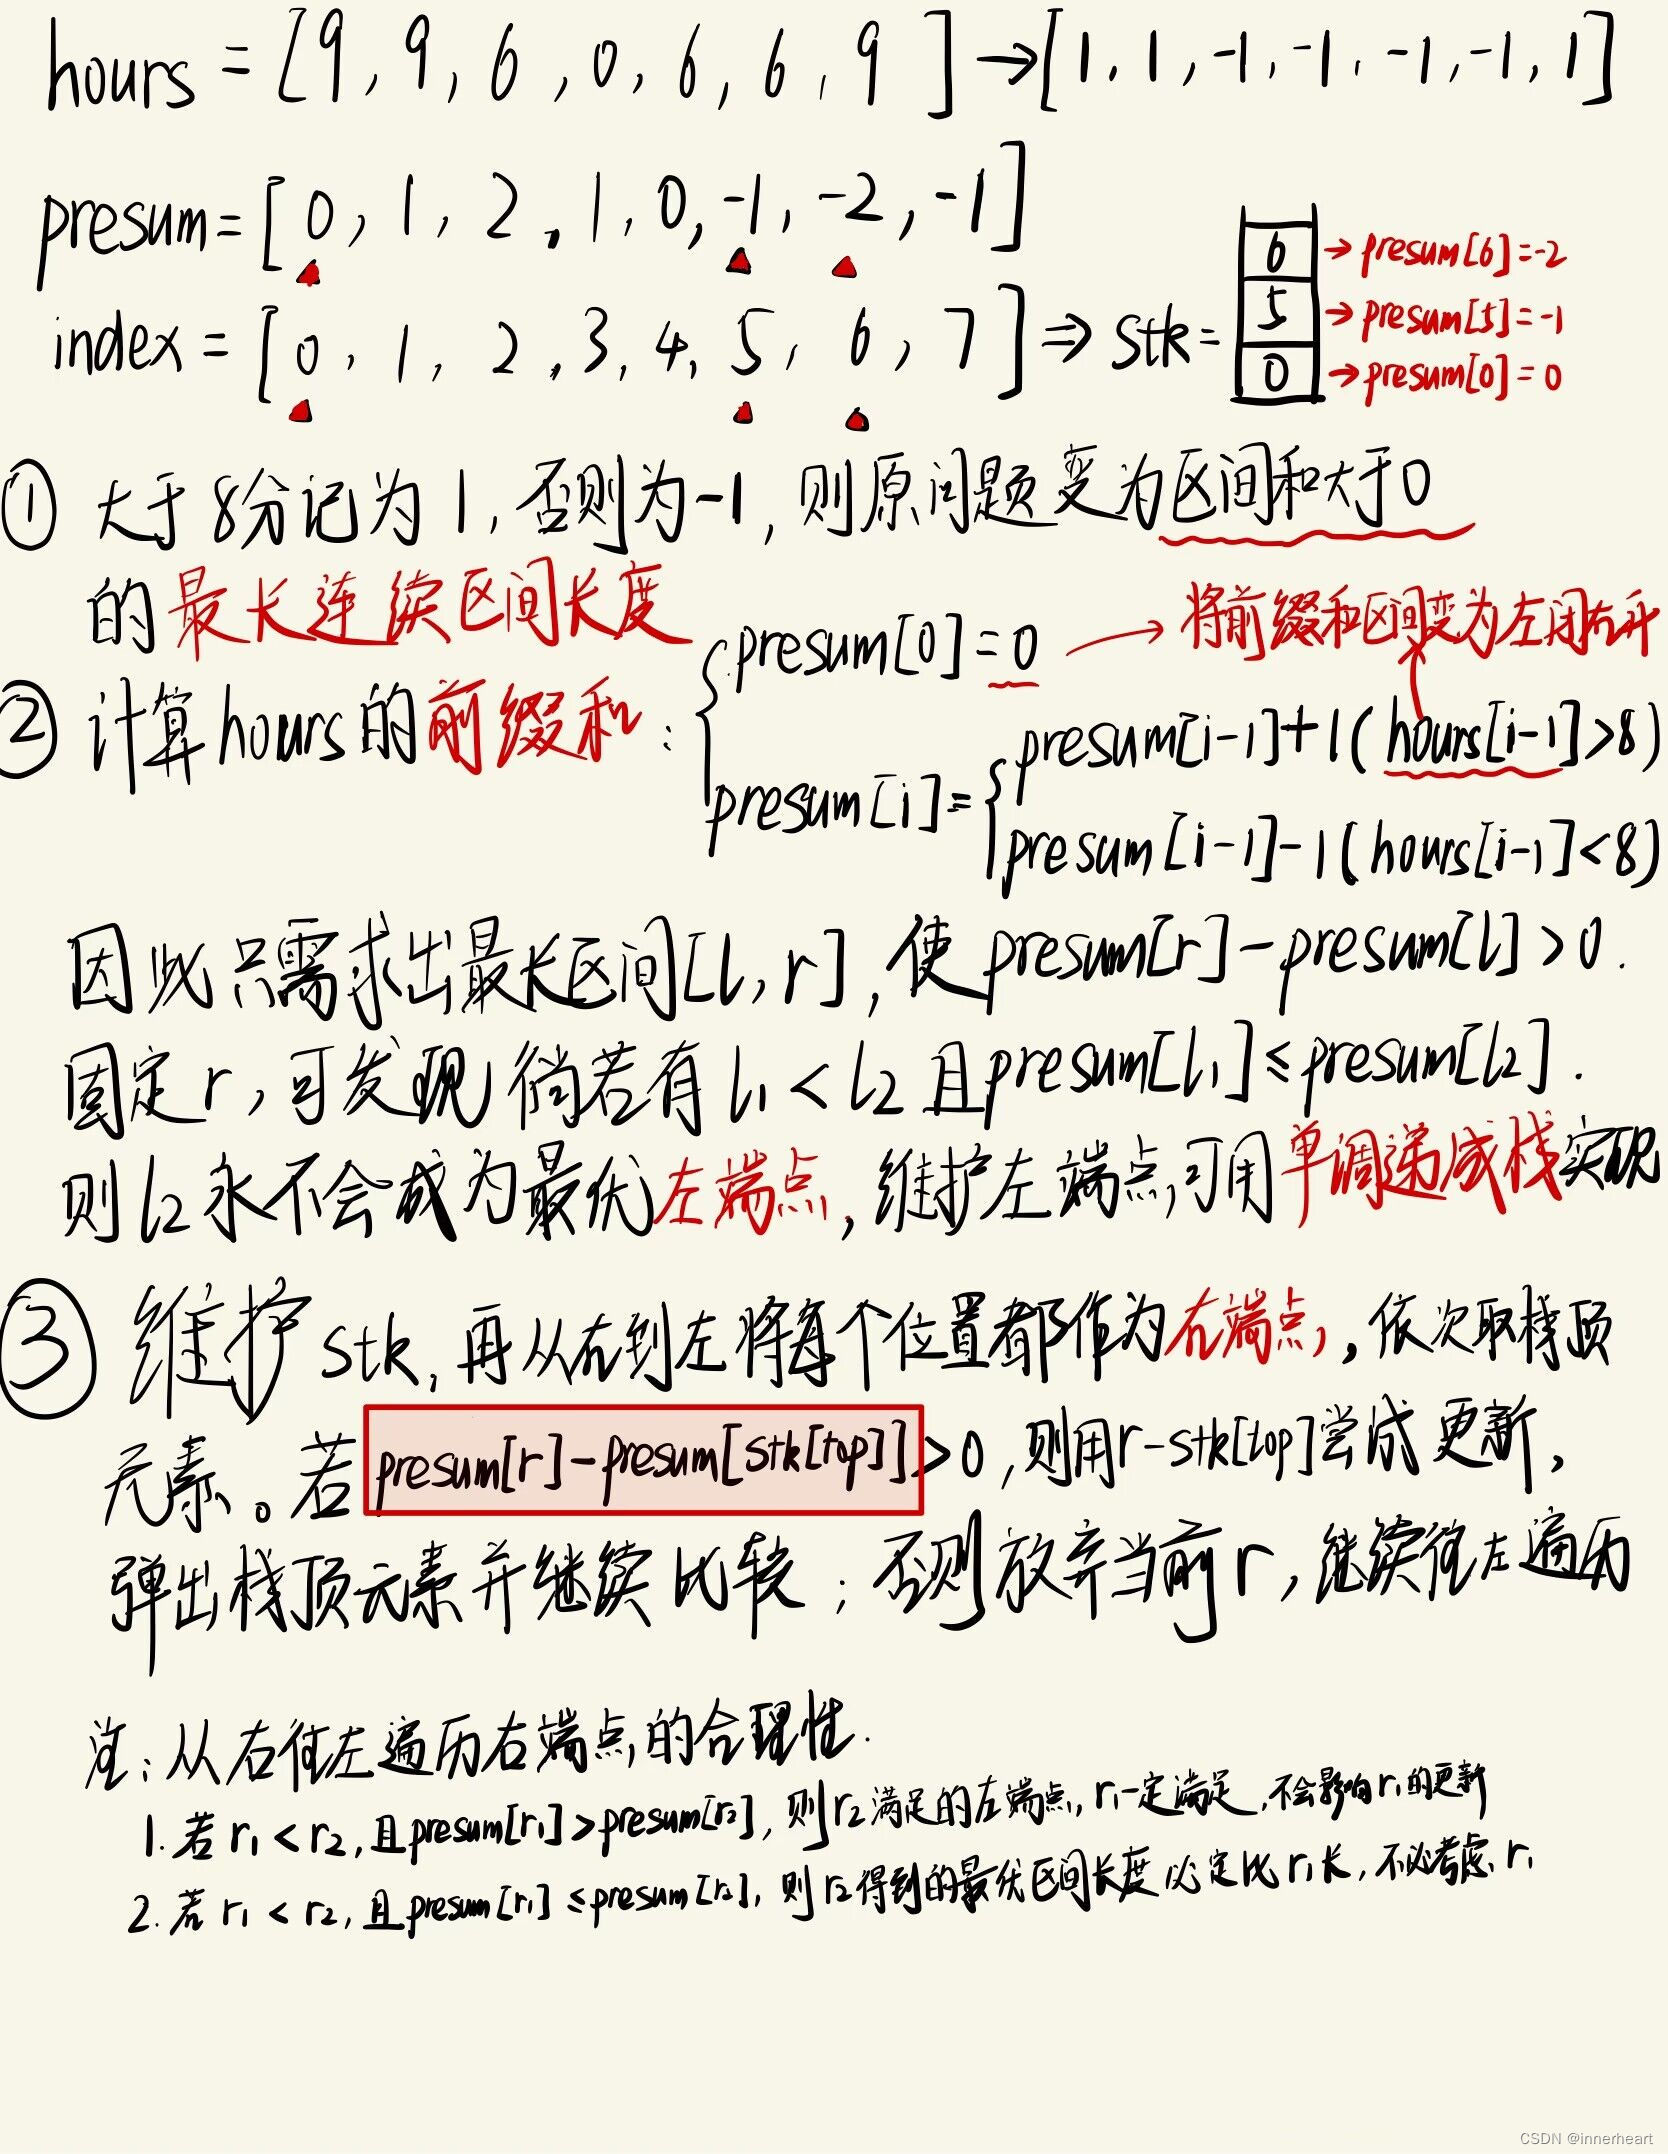 hours = [9, 9, 6, 0, 6, 6, 9] → [1, 1, -1, -1, -1, -1, 1]
presum = [0, 1, 2, 1, 0, -1, -2, -1]
index = [0, 1, 2, 3, 4, 5, 6, 7] ⇒ stk =
6 → presum[6] = -2
5 → presum[5] = -1
0 → presum[0] = 0
① 大于8分记为1, 否则为-1, 则原问题变为区间和大于0
的最长连续区间长度
presum[0] = 0 → 将前缀和区间变为左闭右开
② 计算hours的前缀和:
presum[i] = { presum[i-1]+1 (hours[i-1]>8)
presum[i-1]-1 (hours[i-1]<8)
因此只需求出最长区间[l, r], 使presum[r]-presum[l]>0.
固定r, 可发现倘若有l1<l2且presum[l1]≤presum[l2].
则l2永不会成为最优左端点, 维护左端点,可用单调递减栈实现
③ 维护stk, 再从右到左将每个位置都作为右端点, 依次取栈顶
元素。若presum[r]-presum[stk[top]]>0, 则用r-stk[top]尝试更新,
弹出栈顶元素并继续比较; 否则放弃当前r, 继续往左遍历
注: 从右往左遍历右端点的合理性.
1. 若r1<r2, 且presum[r1]>presum[r2], 则r2满足的左端点, r1一定满足, 不会影响r1的更新
2. 若r1<r2, 且presum[r1]≤presum[r2], 则r2得到的最优区间长度必定比r1长, 不必考虑r1
CSDN @innerheart